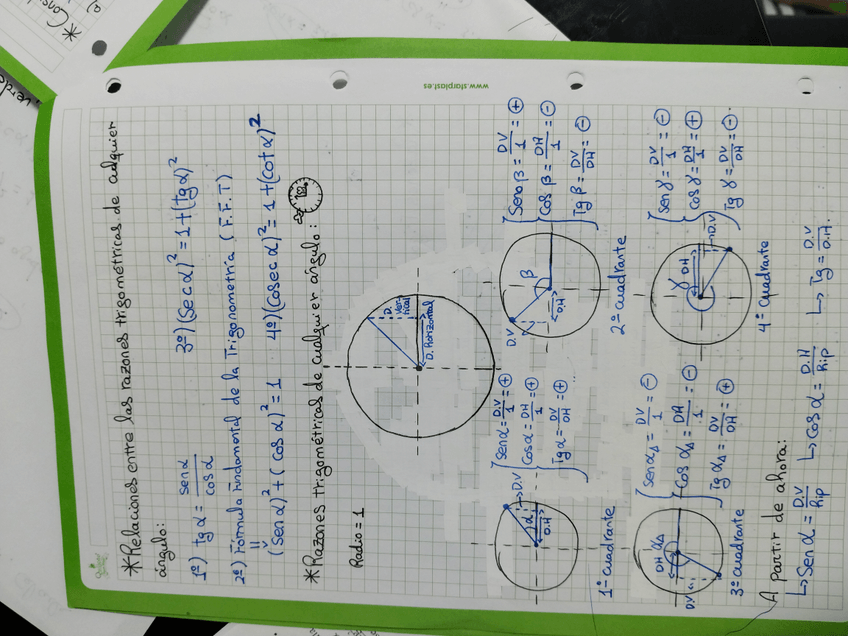 *Relaciones entre las razones trigométricas de cualquier
ángulo:
1º) tgα = senα / cosα
3º) (Sec α)² = 1 + (tgα)²
2º) Fórmula Fundamental de la Trigonometría (F.F.T)
(Sen α)² + (cos α)² = 1
4º) (cosec α)² = 1 + (cot α)²
*Razones trigométricas de cualquier ángulo:
Radio = 1
D. vertical
D. Horizontal
α
D.V
D.H
Sen α = D.V / 1 = +
Cos α = DH / 1 = +
Tg α = DV / DH = +
1º cuadrante
β
D.V
D.H
Seno β = DV / 1 = +
Cos β = DH / 1 = -
Tg β = DV / DH = -
2º cuadrante
DH
α
DV
Sen α = DV / 1 = -
Cos α = DH / 1 = -
Tg α = DV / DH = +
3º cuadrante
γ
DH
D.V
Sen γ = DV / 1 = -
Cos γ = DH / 1 = +
Tg γ = DV / DH = -.
4º cuadrante
A partir de ahora:
↳ Sen α = D.V / hip
↳ cos α = D.H / hip
↳ Tg = D.V / D.H.
www.starplast.es